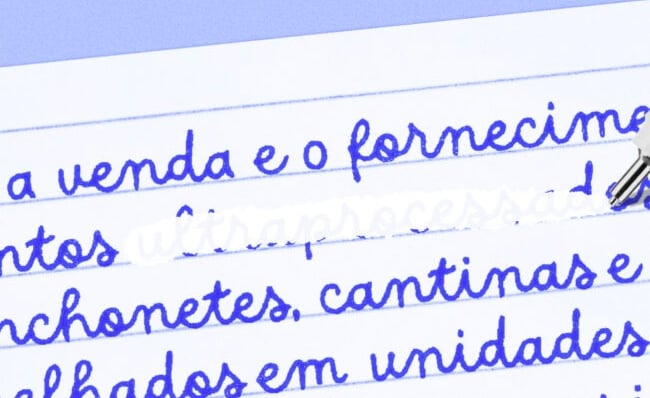 a venda e o fornecime
ntos ultraprocessados
nchonetes, cantinas e
elhados em unidades